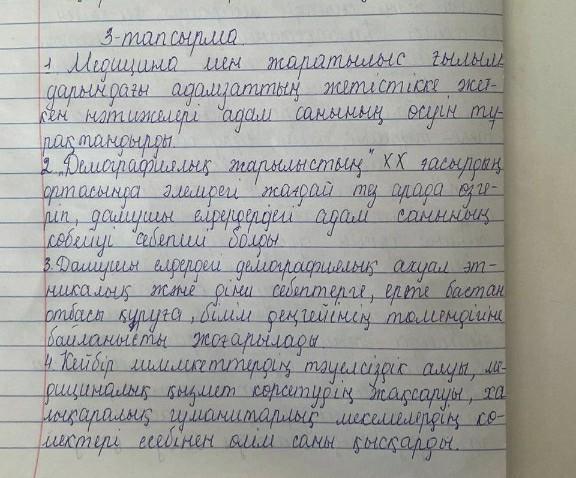 3-тапсырма.
1. Медицина мен жаратылыс ғылым
дарындағы адамзаттың жетістікке жет-
кен нәтижелері адам санының өсуін тұ-
рақтандырды.
2. "Демографиялық жарылыстың" XX ғасырдың
ортасында әлемдегі жағдай тез арада өзге-
ріп, дамушы елдердердегі адам санының
көбеюі себепші болды.
3. Дамушы елдердегі демографиялық ахуал эт-
никалық және діни себептерге, ерте бастан
отбасы құруға, білім деңгейінің төмендігіне
байланысты жоғарылады.
4. Кейбір мемлекеттердің тәуелсіздік алуы, ме-
дициналық қызмет көрсетудің жақсаруы, ха
лықаралық гуманитарлық мекемелердің кө-
мектері есебінен өлім саны қысқарды.